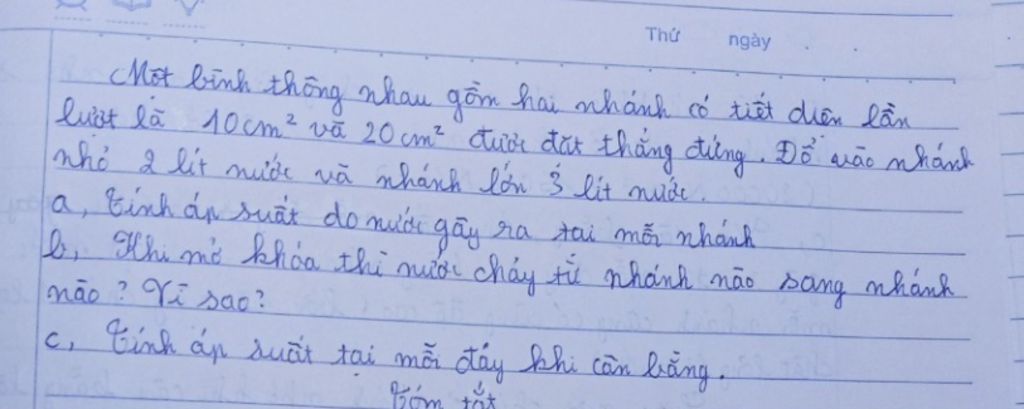 Thứ ngày . .
Một bình thông nhau gồm hai nhánh có tiết diện lần
lượt là 10cm² và 20cm² được đặt thẳng đứng. Đổ vào nhánh
nhỏ 2 lít nước và nhánh lớn 3 lít nước.
a, Tính áp suất do nước gây ra tại mỗi nhánh
b, Khi mở khóa thì nước chảy từ nhánh nào sang nhánh
nào? Vì sao?
c, Tính áp suất tại mỗi đáy khi cân bằng.
Tóm tắt